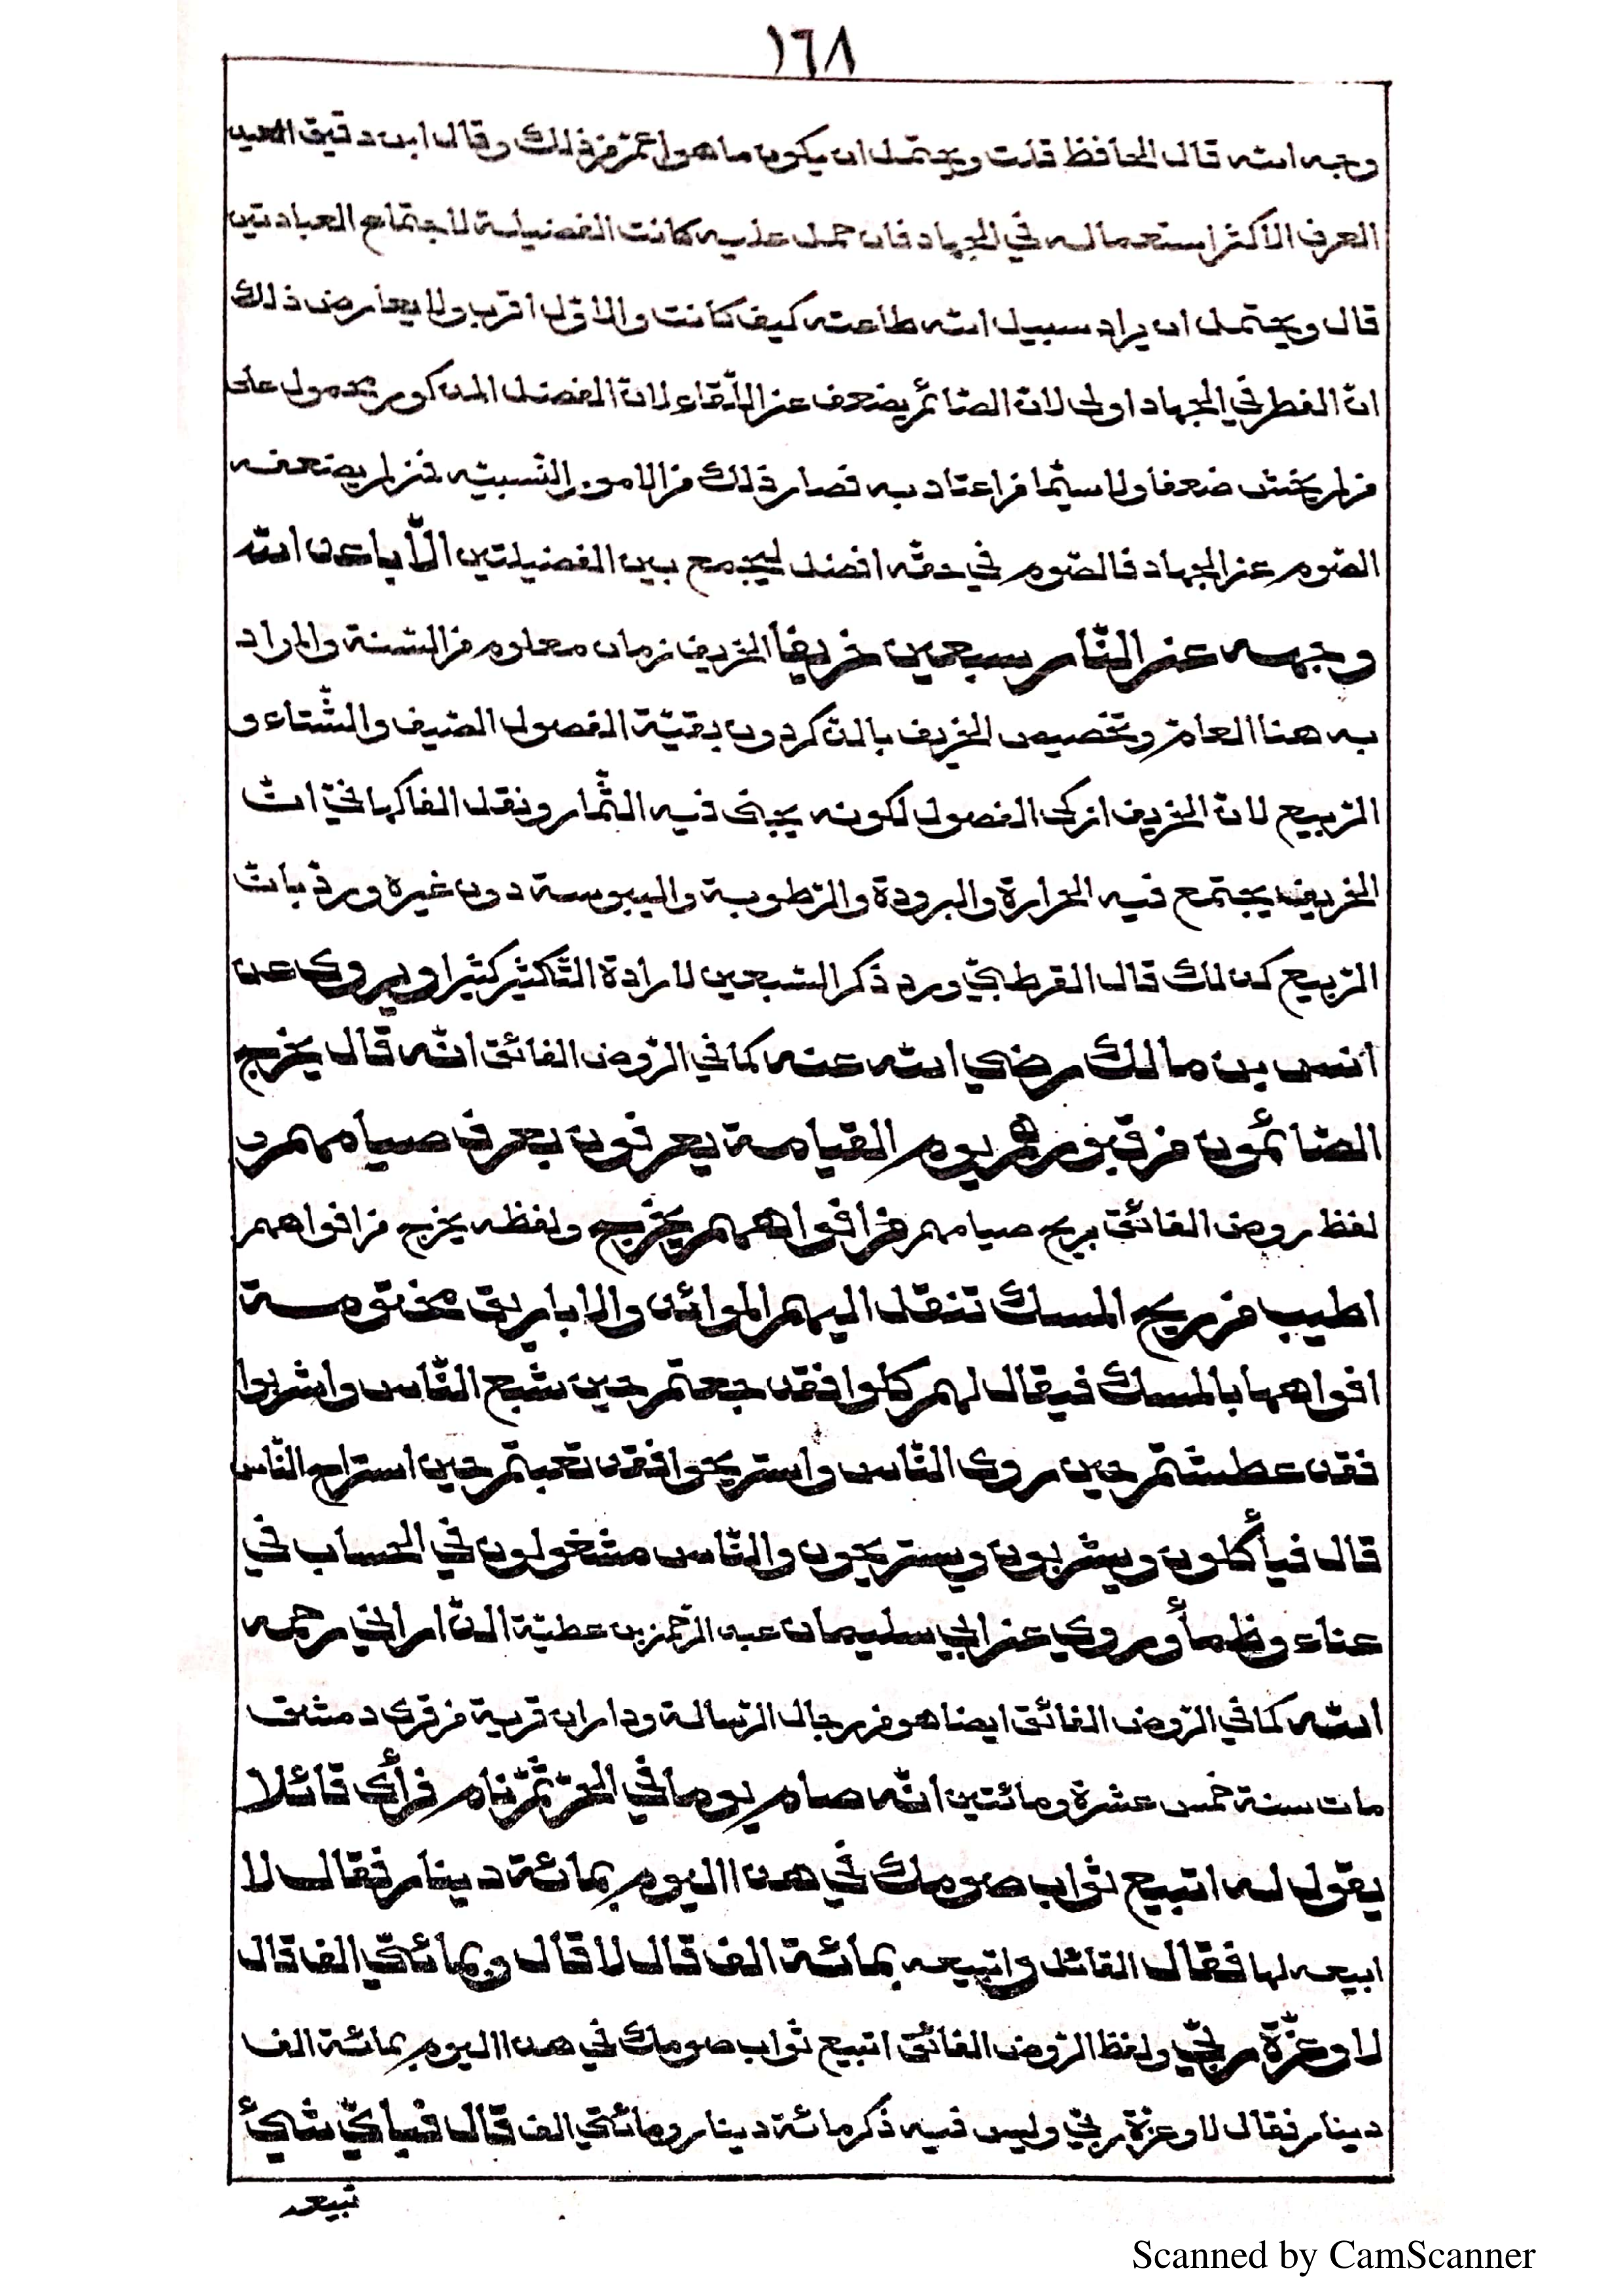 ١٦٨
وجه الله قال الحافظ قلت ويحتمل ان يكون ما هو اعمّ من ذلك وقال ابن دقيق العيد
العرف الاكثر استعماله في الجهاد فان حمل عليه كانت الفضيلة لاجتماع العبادتين
قال ويحتمل ان يراد سبيل الله طاعته كيف كانت والاوّل اقرب ولا يعارض ذلك
انّ الفطر في الجهاد اولى لانّ الصّائم يضعف عن اللّقاء لانّ الفضل المذكور محمول على
من لم يخش ضعفا ولا سيّما من اعتاد به فصار ذلك من الامور النّسبيّه فمن لم يضعفه
الصّوم عن الجهاد فالصّوم في حقّه افضل ليجمع بين الفضيلتين الّا باعد الله
وجهه عن النّار سبعين خريفا الخريف زمان معلوم من السّنة والمراد
به هنا العام وتخصيص الخريف بالذكر دون بقيّة الفصول الصّيف والشّتاء و
الرّبيع لانّ الخريف ازكى الفصول لكونه يجنى فيه الثّمار ونقل الفاكهانيّ انّ
الخريف يجتمع فيه الحرارة والبرودة والرّطوبة واليبوسة دون غيره ورد بانّ
الرّبيع كذلك قال القرطبيّ ورد ذكر السّبعين لارادة التّكثير كثيرا ويروى عن
انس بن مالك رضي الله عنه كما في الرّوض الفائق انّه قال يخرج
الصّائمون من قبورهم يوم القيامة يعرفون بعرف صيامهم و
لفظ روض الفائق بريح صيامهم من افواههم يخرج ولفظه يخرج من افواههم
اطيب من ريح المسك تنقل اليهم الموائد والاباريق مختومة
افواهها بالمسك فيقال لهم كلوا فقد جعتم حين شبع النّاس واشربوا
فقد عطشتم حين روى النّاس واستريحوا فقد تعبتم حين استراح النّاس
قال فيأكلون ويشربون ويستريحون والنّاس مشغولون في الحساب في
عناء وظمأ وروي عن ابي سليمان عبد الرّحمن بن عطيّة الدّاراني رحمه
الله كما في الرّوض الفائق ايضا هو من رجال الرّسالة وداران قرية من قرى دمشق
مات سنة خمس عشرة ومائتين انّه صام يوما في الحرّ ثمّ نام فرأى قائلا
يقول له اتبيع ثواب صومك في هذا اليوم بمائة دينار فقال لا
ابيعه لها فقال القائل واتبيعه بمائة الف قال لا قال وبمائتي الف قال
لا وعزّة ربّي ولفظ الرّوض الفائق اتبيع ثواب صومك في هذا اليوم بمائة الف
دينار فقال لا وعزّة ربّي وليس فيه ذكر مائة دينار ومائتي الف قال فبايّ شيئ
تبيعه
Scanned by CamScanner